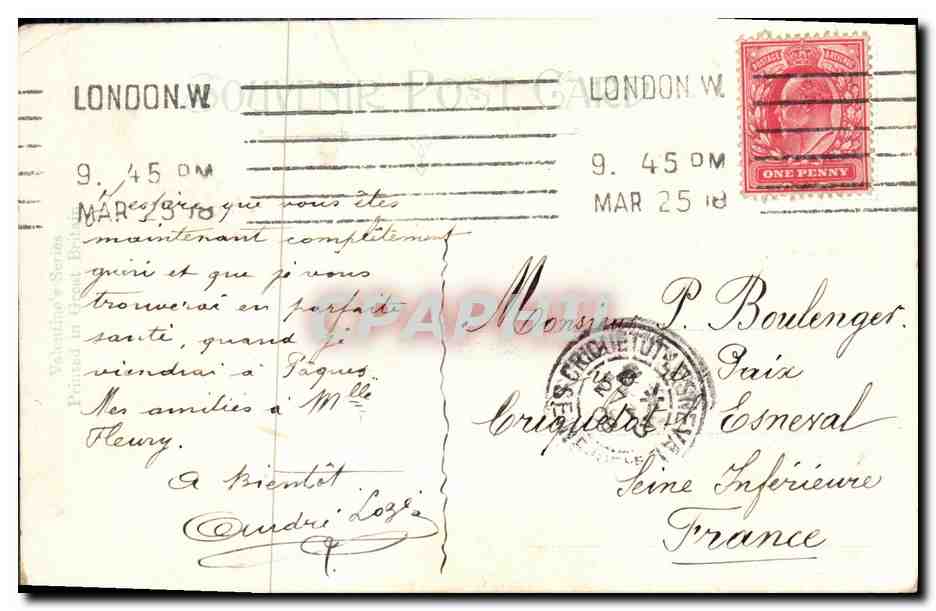 SOUVENIR POST CARD
LONDON.W.
9. 45 PM
MAR 25 10
LONDON.W.
9. 45 PM
MAR 25 10
POSTAGE REVENUE
ONE PENNY
Valentine's Series
Printed in Great Britain
J'espère que vous êtes
maintenant complètement
guéri et que je vous
trouverai en parfaite
santé, quand je
viendrai à Pâques
Mes amitiés à Mlle
Fleury.
A bientôt
André
Monsieur P. Boulenger.
Paix
Criquetot Esneval
Seine Inférieure
France
CRIQUETOT-L'ESNEVAL
CPAPHIL